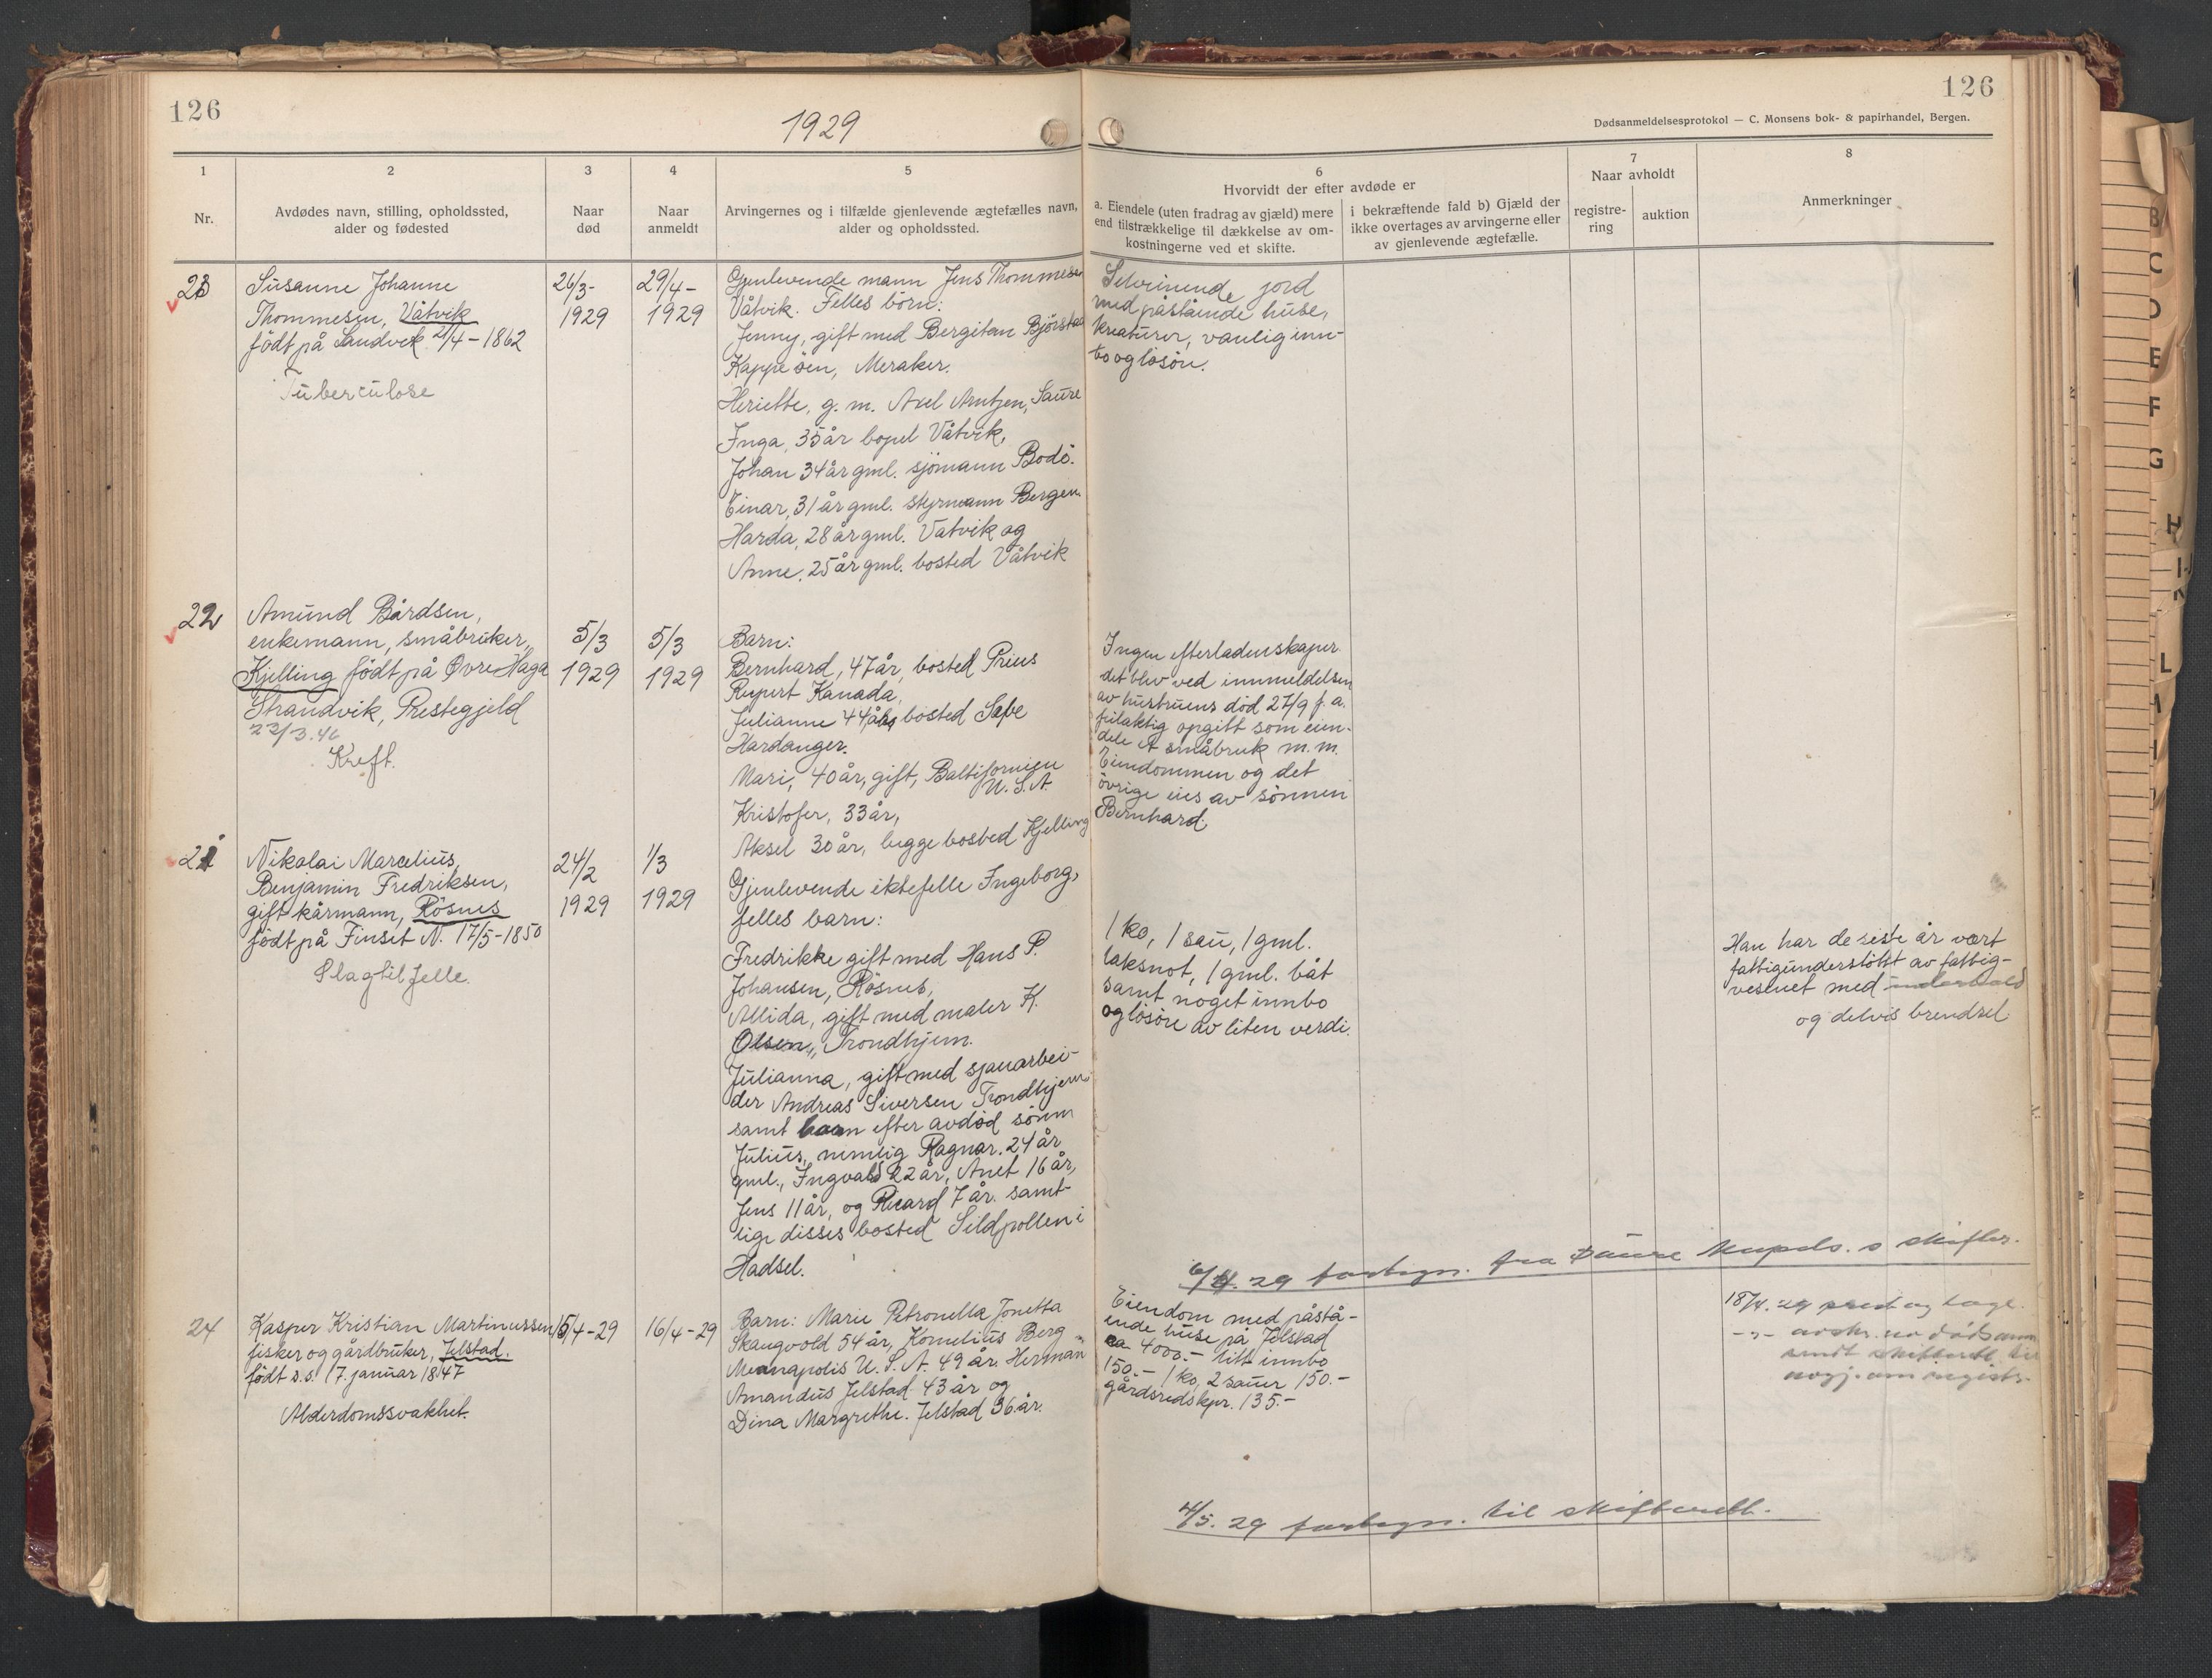 126
1929
126
Dødsanmeldelsesprotokol — C. Monsens bok- & papirhandel, Bergen.
1
2
3
4
5
6
7
8
Nr.
Avdødes navn, stilling, opholdssted,
alder og fødested
Naar
død
Naar
anmeldt
Arvingernes og i tilfælde gjenlevende ægtefælles navn,
alder og opholdssted.
Hvorvidt der efter avdøde er
a. Eiendele (uten fradrag av gjæld) mere
end tilstrækkelige til dækkelse av om-
kostningerne ved et skifte.
i bekræftende fald b) Gjæld der
ikke overtages av arvingerne eller
av gjenlevende ægtefælle.
Naar avholdt
registre-
ring
auktion
Anmerkninger
23
Susanne Johanne
Thommesen, Våtvik
født på Sandvik 21/4-1862
Tuberculose
26/3-
1929
29/4-
1929
Gjenlevende mann Jens Thommesen
Våtvik. Felles børn:
Jenny, gift med Bergitan Bjørstad
Kappeøen, Meraker.
Heriette, g. m. Axel Arntzen, Saure
Inga, 35 år bopel Våtvik,
Johan 34 år gml. sjømann Bodø.
Einar, 31 år gml. styrmann Bergen.
Harda, 28 år gml. Våtvik og
Anne, 25 år gml. bosted Våtvik
Selveiende jord
med påstående huse,
kreaturer, vanlig inn-
bo og løsøre.
22
Amund Bårdsen,
enkemann, småbruker,
Kjelling født på Øvre Haga
Strandvik, Prestegjeld
22/3.46
Kreft.
5/3
1929
5/3
1929
Barn:
Bernhard, 47 år, bosted Prins
Rupert Kanada,
Julianne 44 år, bosted
Hardanger.
Mari, 40 år, gift, Baltifornien
U.S.A.
Kristofer, 33 år,
Aksel 30 år, begge bosted Kjelling
Ingen efterladenskaper
det blev ved innmeldelsen
av hustruens død 27/9 f.a.
feilaktig opgitt som eien-
dele et småbruk m.m.
Eiendommen og det
øvrige eies av sønnen
Bernhard.
21
Nikolai Marcelius,
Benjamin Fredriksen,
gift kårmann, Røsnes
født på Finset N. 17/5-1850
Slagtilfelle.
24/2
1929
1/3
1929
Gjenlevende ektefelle Ingeborg,
felles barn:
Fredrikke gift med Hans P.
Johansen, Røsnes,
Allida, gift med maler K.
Olsen, Trondhjem.
Julianna, gift med sjauarbei-
der Andreas Siversen Trondhjem
samt barn efter avdød sønn
Julius, nemlig Ragnar. 24 år
gml., Ingvald 22 år, Anet 16 år,
Jens 11 år, og Ricard 7 år. samt-
lige disses bosted Sildpollen i
Hadsel.
1 ko, 1 sau, 1 gml.
laksnot, 1 gml. båt
samt noget innbo
og løsøre av liten verdi.
Han har de siste år vært
fattigunderstøttet av fattig-
vesenet med underhold
og delvis brendsel.
29 fortegn. fra Saure skifter.
24
Kasper Kristian Martinussen
fisker og gårdbruker, Jelstad.
født s.s. 17. januar 1847
Alderdomssvakhet.
15/4-29
16/4-29
Barn: Marie Petronella Jonetta
Skaugvold 54 år, Kornelius Berg
Menapolis U.S.A. 49 år. Herman
Amandus Jelstad 43 år og
Dina Margrethe. Jelstad 36 år.
Eiendom med påstå-
ende huse på Jelstad
ca 4000.- litt innbo
150.- 1 ko, 2 sauer 150.-
gårdsredskpr. 135.-
18/4. 29
4/5. 29 fortegn. til skifterett.
B
C
D
E
F
G
H
L